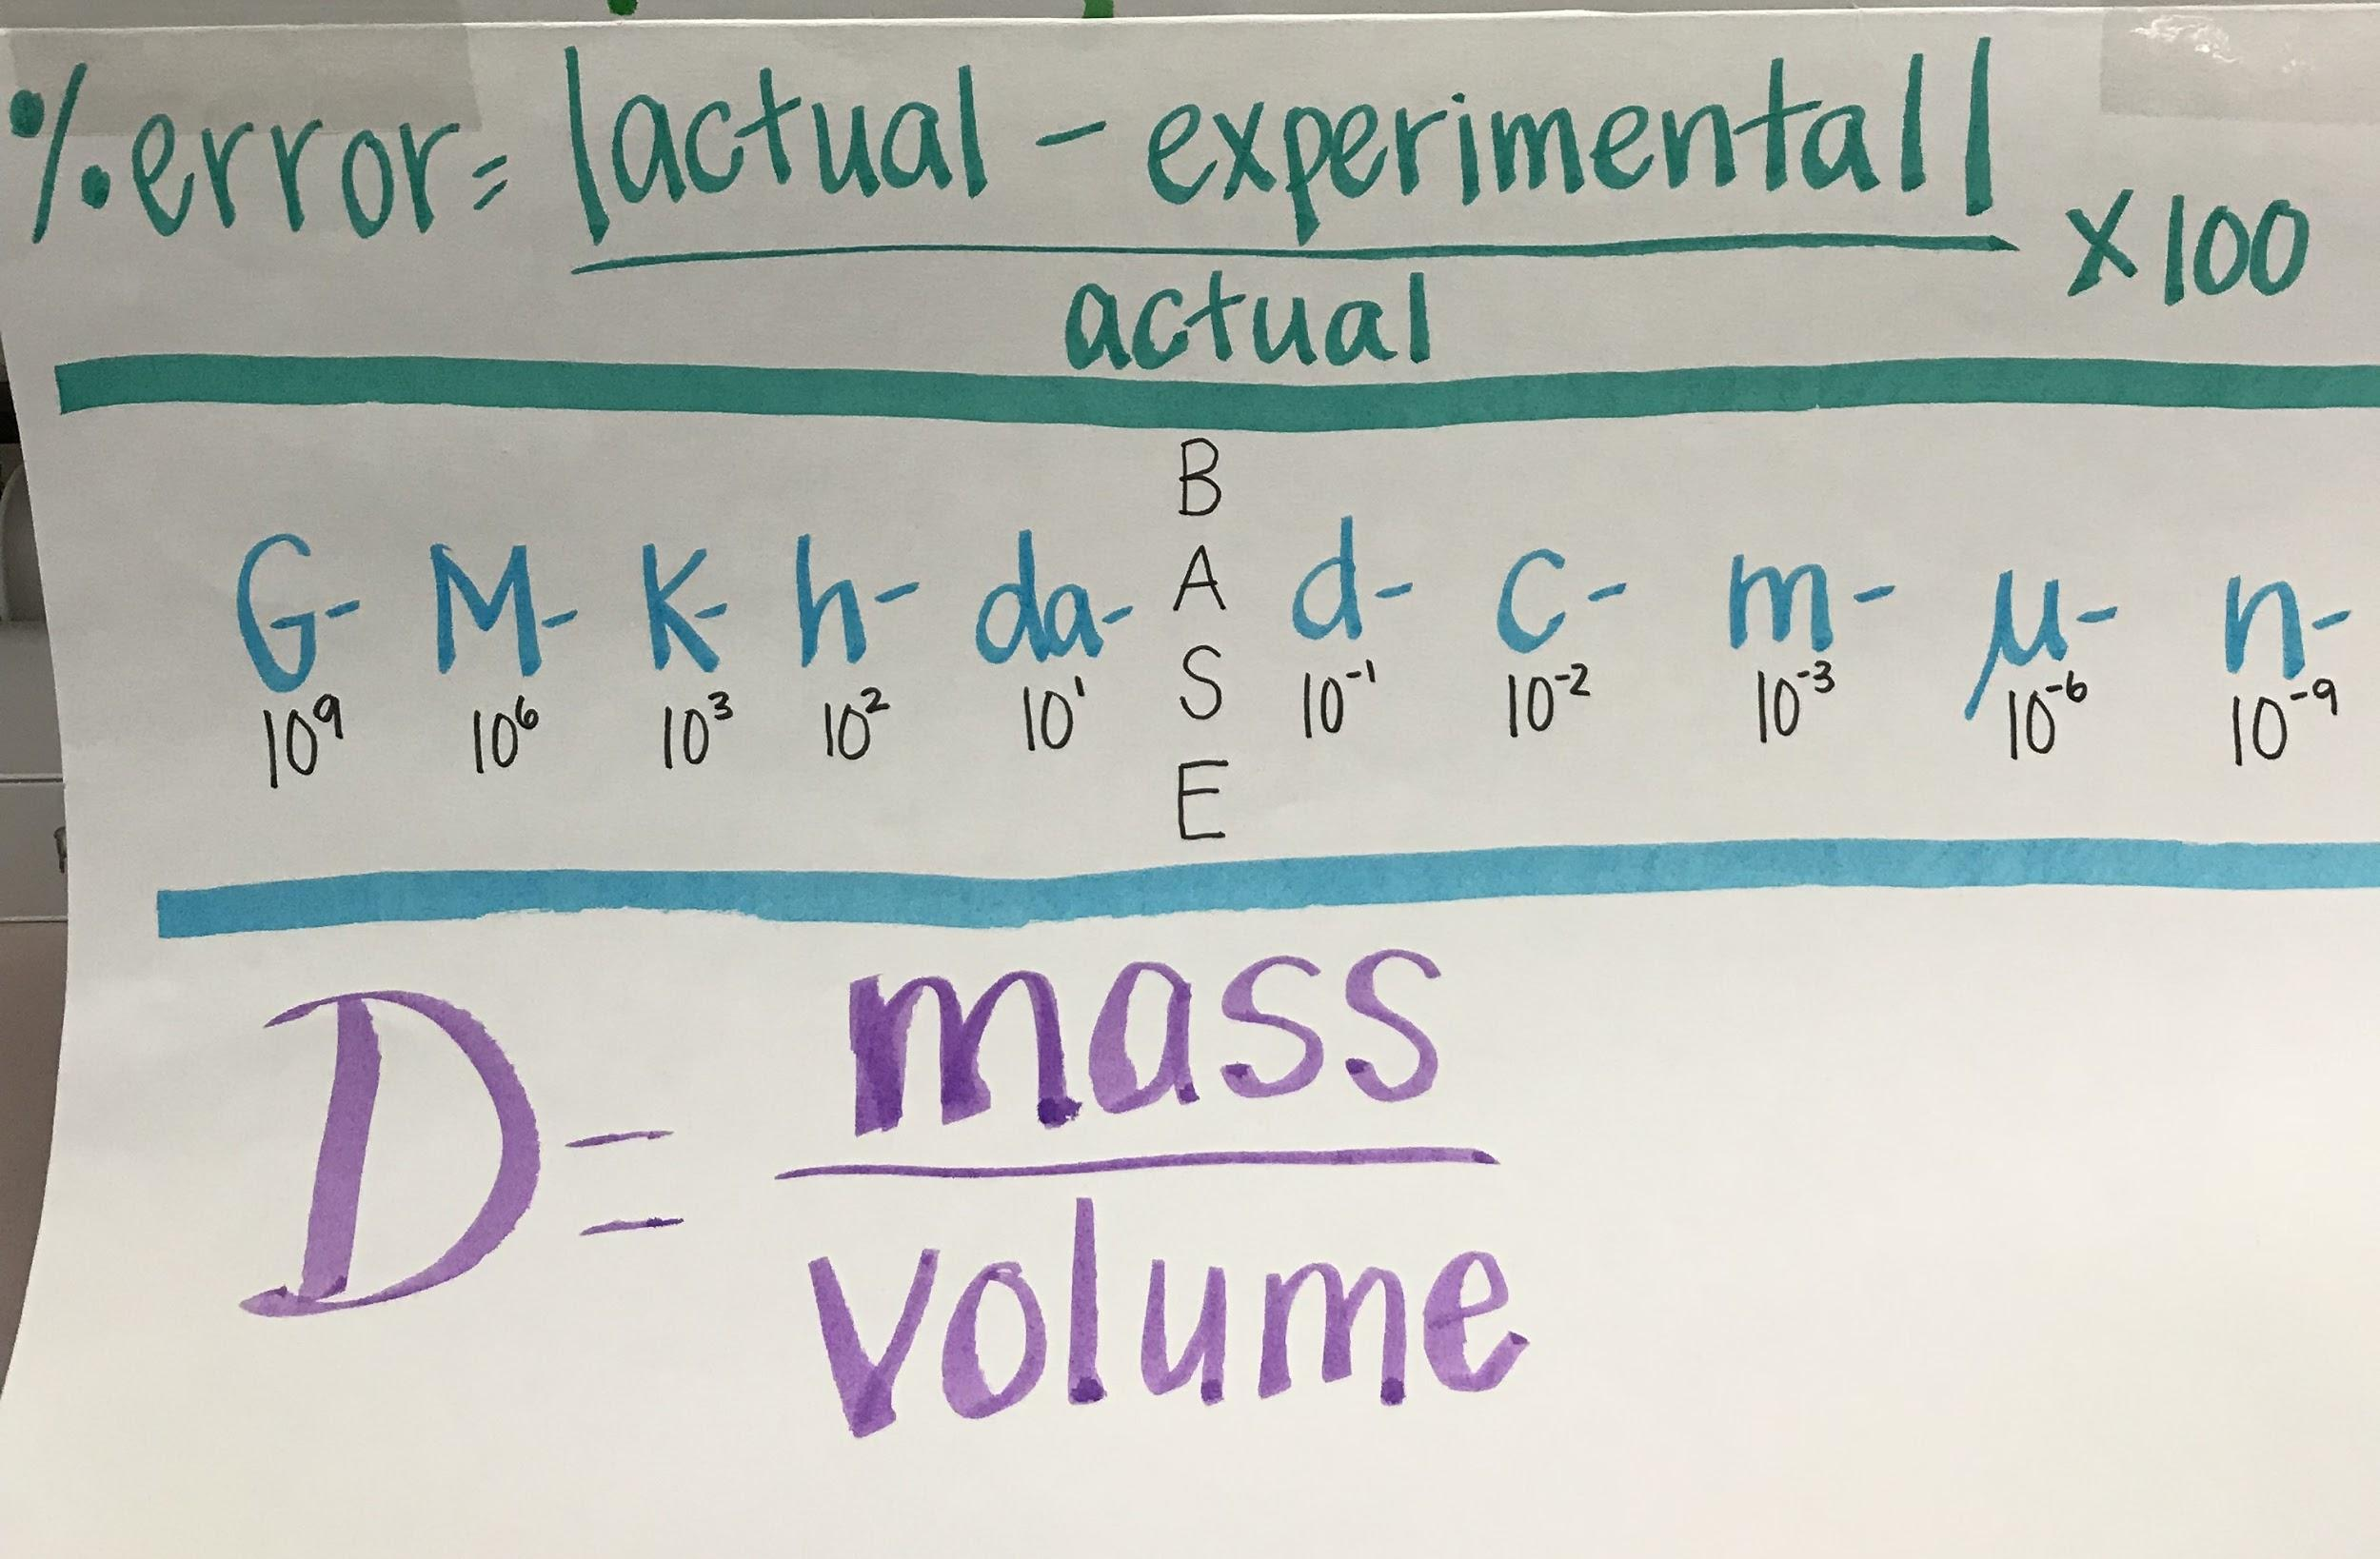 % error = |actual - experimental|
x 100
actual
B
A
S
E
G- M- K- h- da- d- c- m- μ- n-
10⁹ 10⁶ 10³ 10² 10¹ 10⁻¹ 10⁻² 10⁻³ 10⁻⁶ 10⁻⁹
D = mass
volume